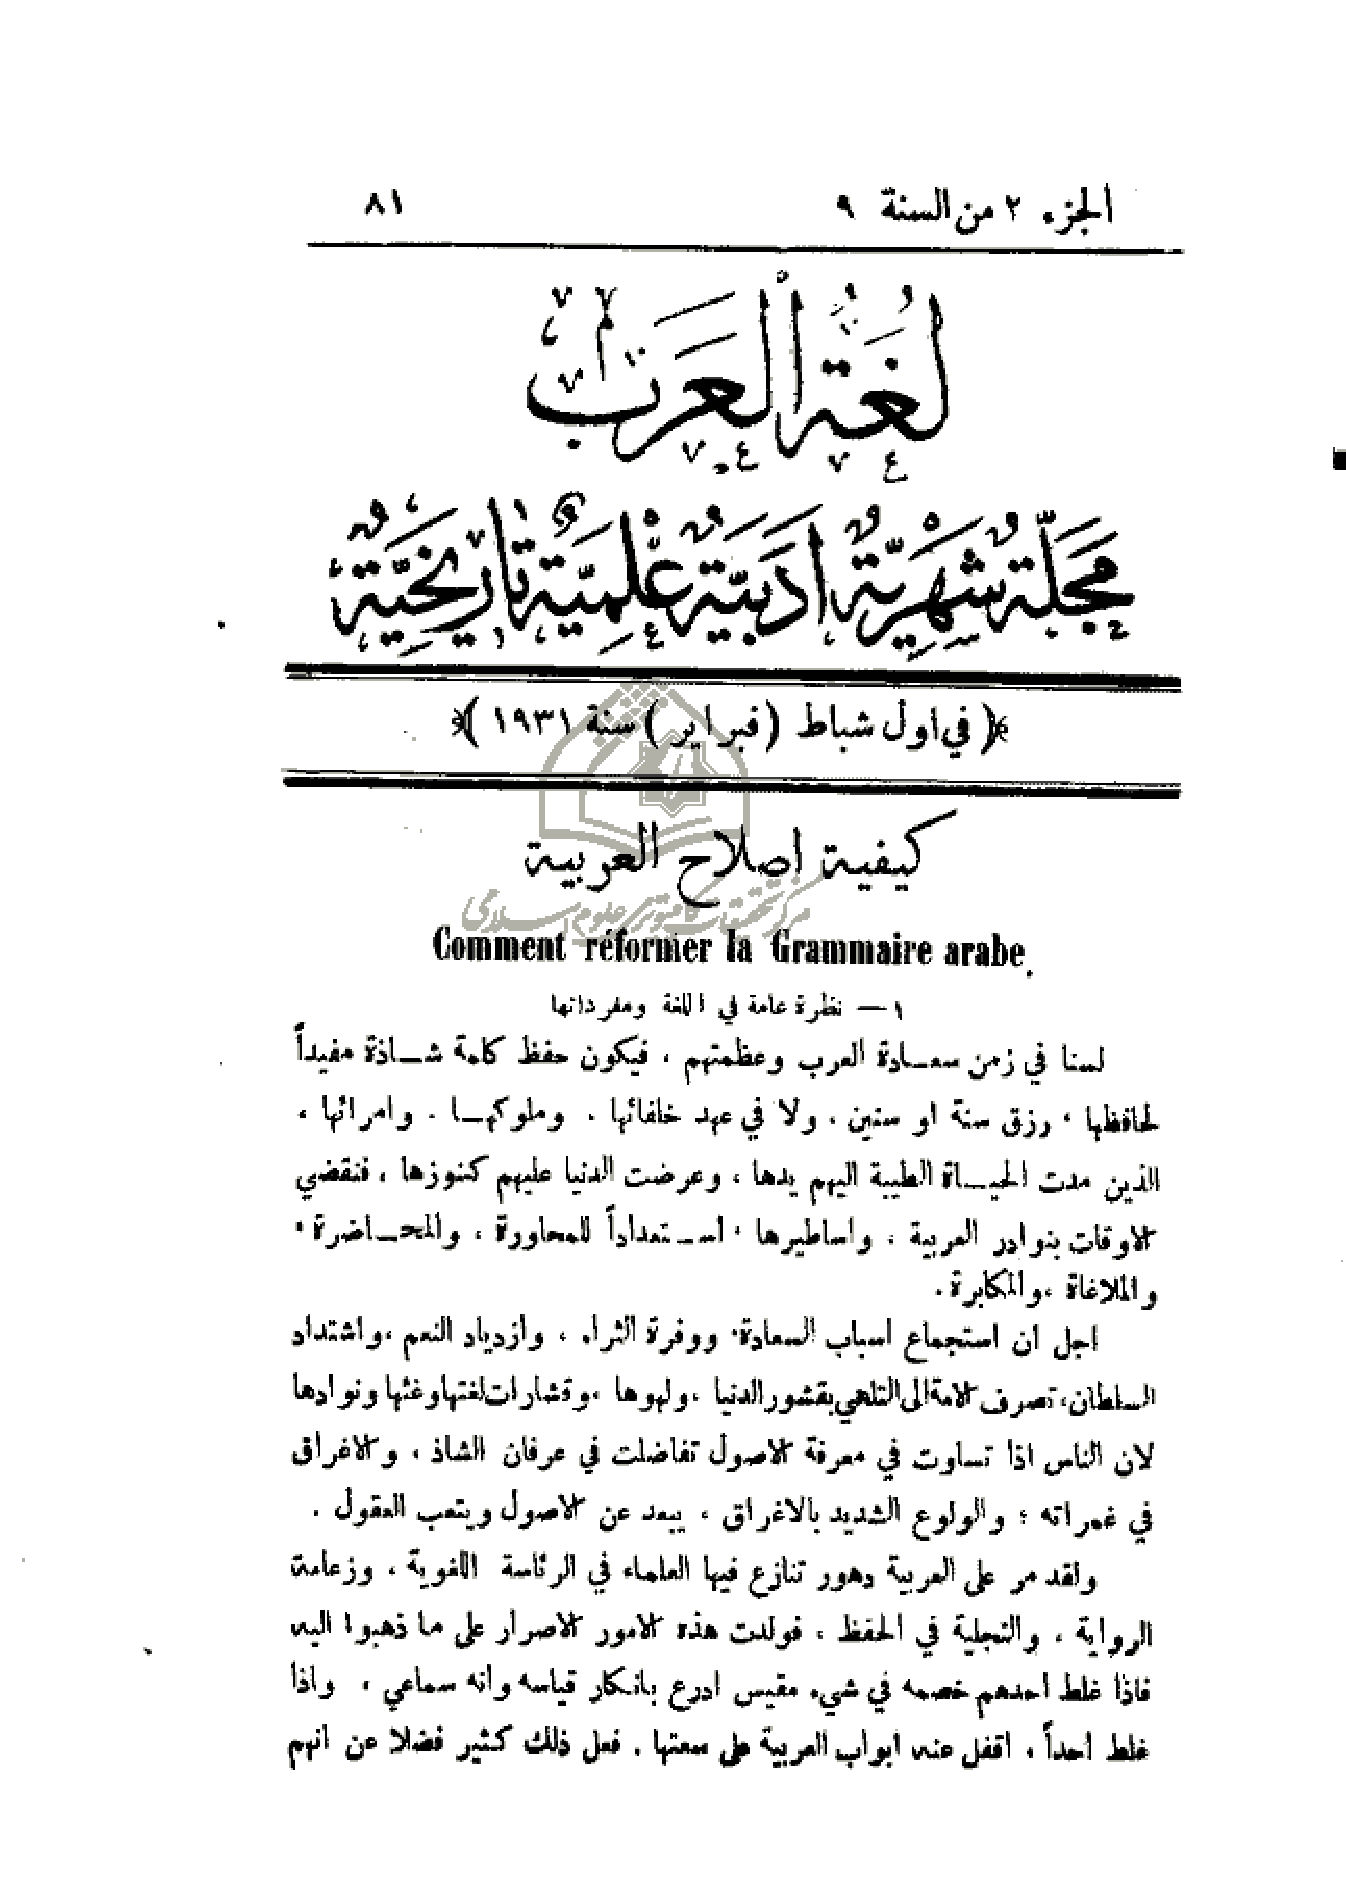 الجزء ٢ من السنة ٩
٨١
لُغَةُ الْعَرَب
مَجَلَّةٌ شَهْرِيَّةٌ اَدَبِيَّةٌ عِلْمِيَّةٌ تَارِيخِيَّةٌ
(في اول شباط (فبراير) سنة ١٩٣١)
كيفية اصلاح العربية
مركز تحقيقات كامپيوتري علوم اسلامي
Comment réformer la Grammaire arabe.
١ — نظرة عامة في اللغة ومفرداتها
لسنا في زمن سعـادة العرب وعظمتهم ، فيكون حفظ كلمة شـاذة مفيداً
لحافظها ، رزق سنة او سنين ، ولا في عهد خلفائها . وملوكهـا . وامرائها ،
الذين مدت الحيـاة الطيبة اليهم يدها ، وعرضت الدنيا عليهم كنوزها ، فنقضي
الاوقات بنوادر العربية ، واساطيرها ، استـعداداً للمحاورة ، والمحـاضرة ،
والملاغاة ،والمكابرة .
اجل ان استجماع اسباب السعادة، ووفرة الثراء ، وازدياد النعم ،واشتداد
السلطان، تصرف الامة الى التلهي بقشور الدنيا ،ولهوها ،وقشارات لغتها وغثها ونوادها
لان الناس اذا تساوت في معرفة الاصول تفاضلت في عرفان الشاذ ، والاغراق
في غمراته ؛ والولوع الشديد بالاغراق ، يبعد عن الاصول ويتعب العقول .
ولقد مر على العربية دهور تنازع فيها العلماء في الرئاسة اللغوية ، وزعامة
الرواية ، والتجلية في الحفظ ، فولدت هذه الامور الاصرار على ما ذهبوا اليه
فاذا غلط احدهم خصمه في شيء مقيس ادرع بانكار قياسه وانه سماعي ، واذا
غلط احداً ، اقفل عنه ابواب العربية على سعتها . فعل ذلك كثير فضلا عن انهم